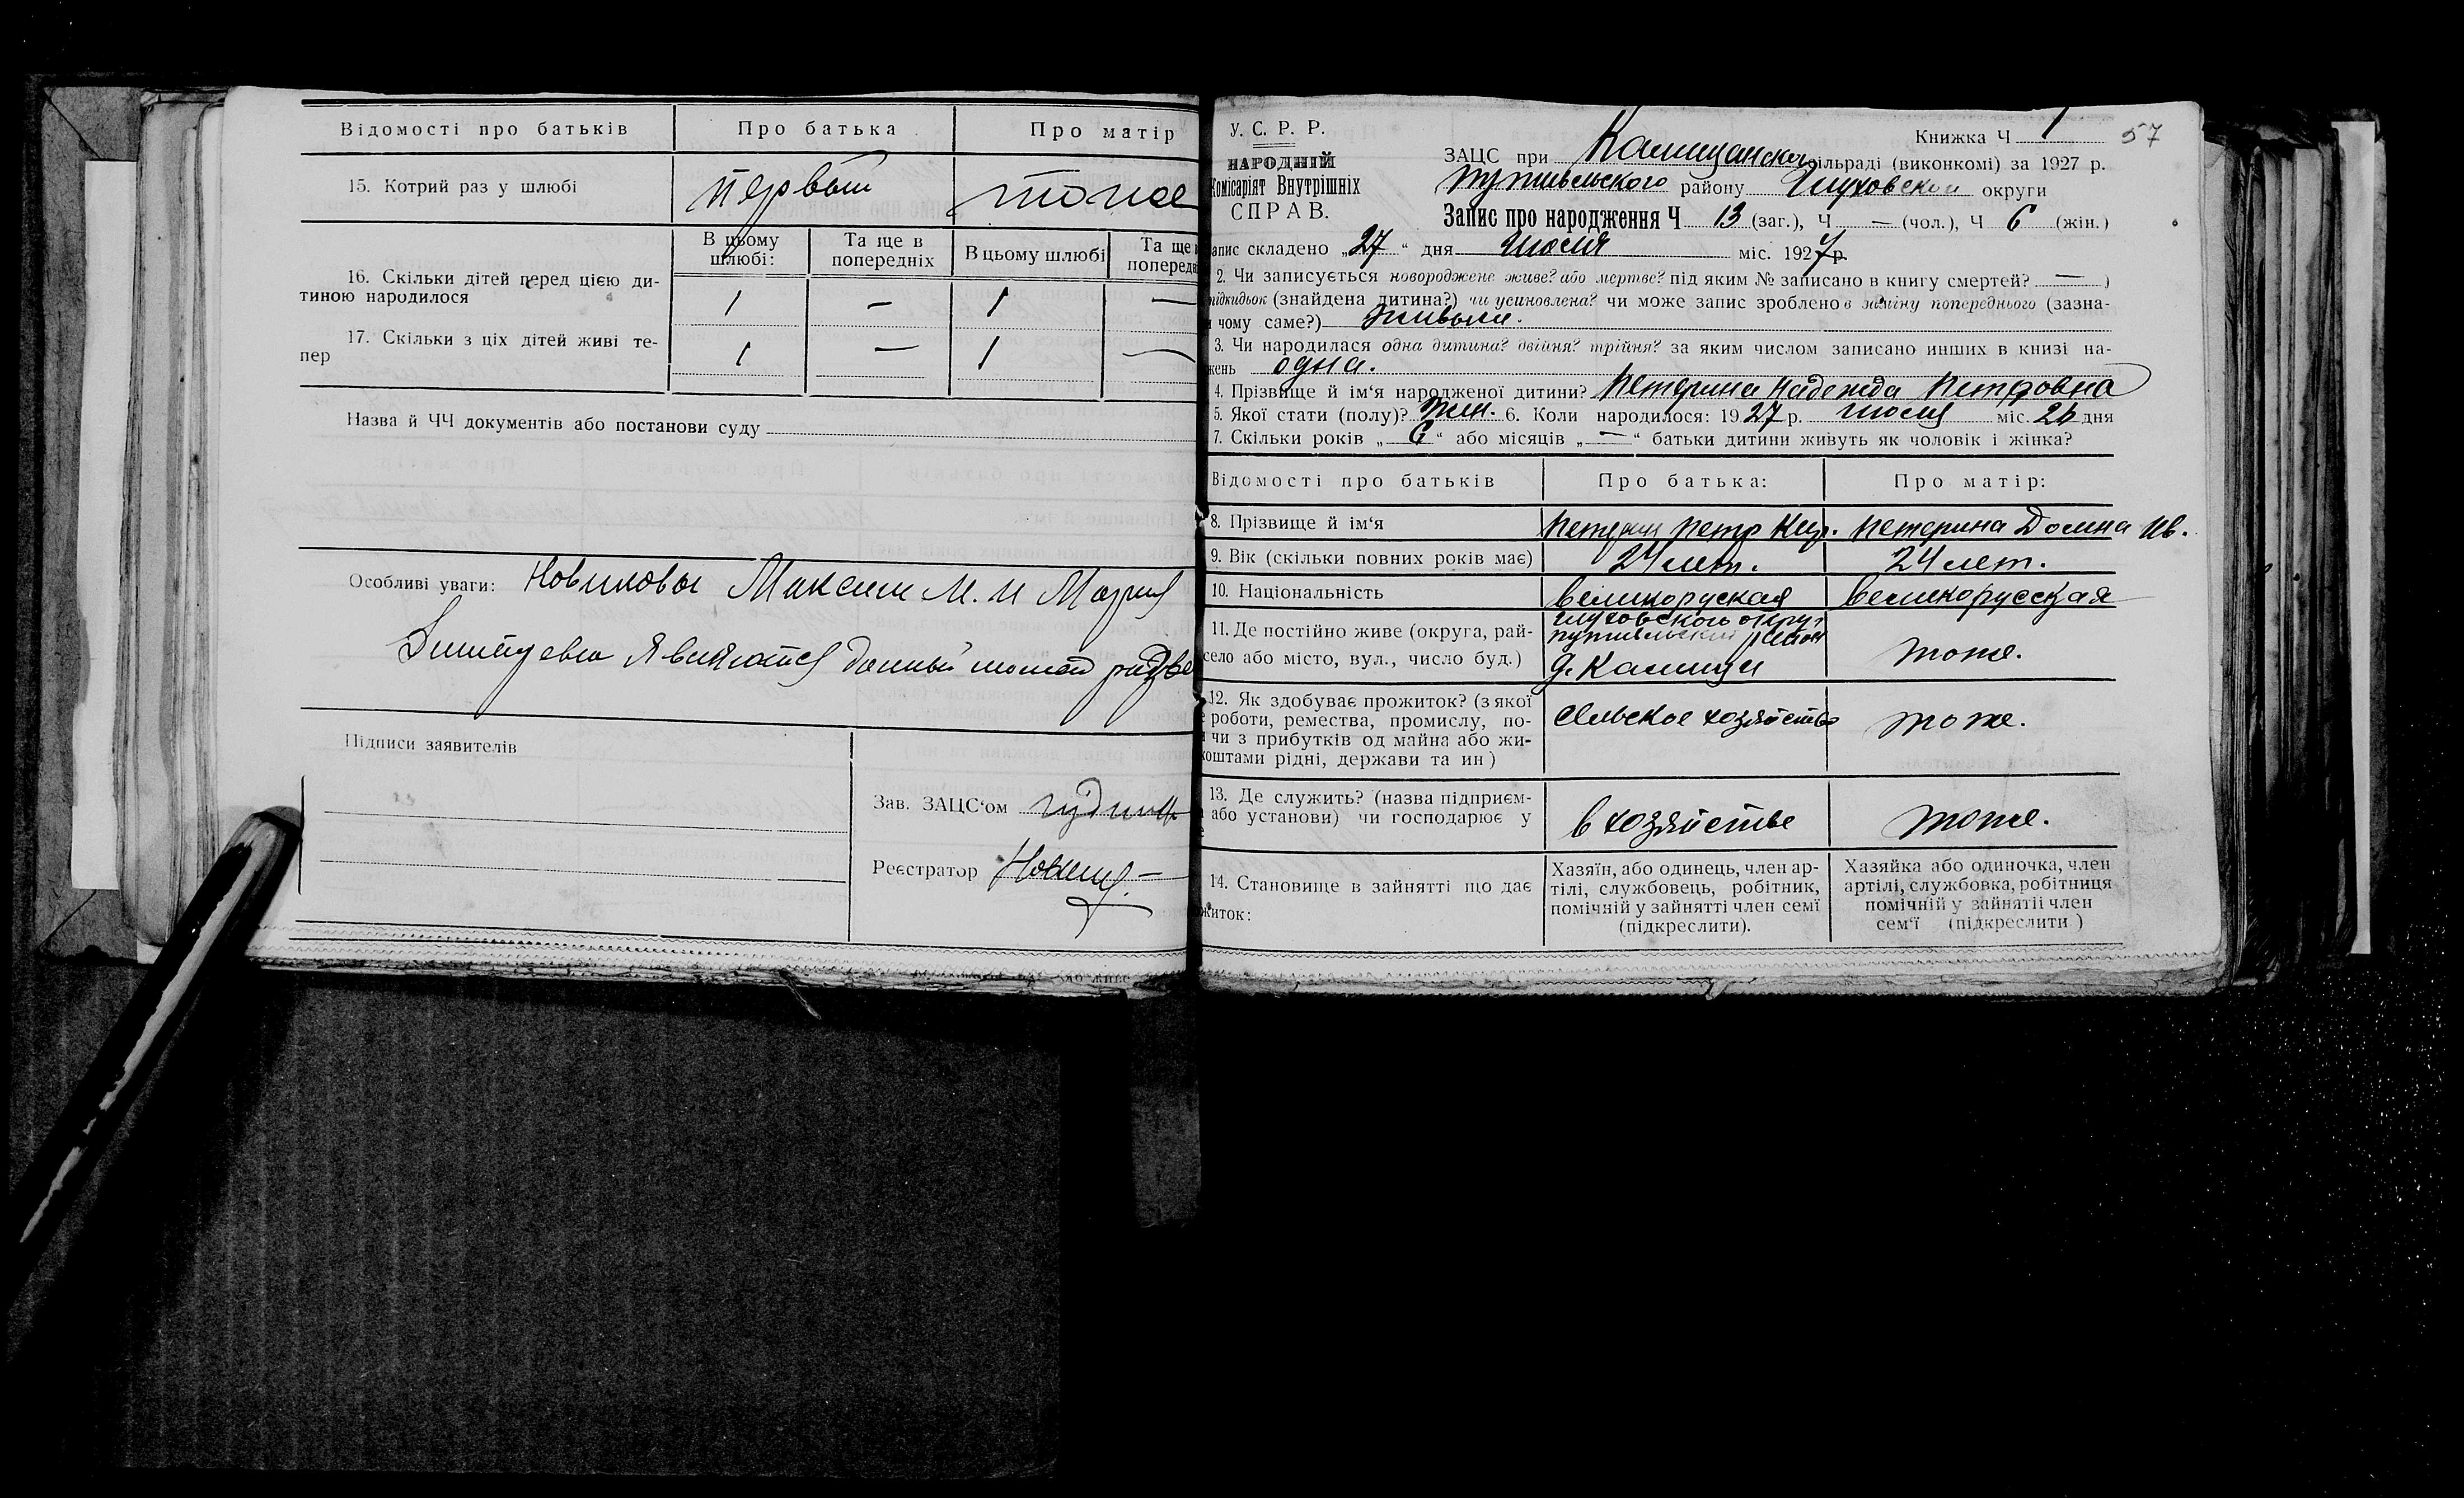 Відомості про батьків Про батька Про матір
15. Котрий раз у шлюбі первый тоже
В цьому шлюбі: Та ще в попередніх В цьому шлюбі Та ще
попередн
16. Скільки дітей перед цією ди-
тиною народилося 1 — 1 —
17. Скільки з ціх дітей живі те-
пер 1 — 1 —
Назва й ЧЧ документів або постанови суду
Особливі уваги: Новиковы Максим М. и Мария
являются
Підписи заявителів
Зав. ЗАЦС‘ом
Реєстратор
У. С. Р. Р.
НАРОДНІЙ
Комісаріят Внутрішніх
СПРАВ.
Книжка Ч 1 57
ЗАЦС при сільраді (виконкомі) за 1927 р.
Путивльского району Глуховской округи
Запис про народження Ч 13 (заг.), Ч — (чол.), Ч 6 (жін.)
апис складено „27“ дня Июля міс. 1927 р.
2. Чи записується новороджене живе? або мертве? під яким № записано в книгу смертей? — )
підкидьок (знайдена дитина?) чи усиновлена? чи може запис зроблено в заміну попереднього (зазна-
чому саме?) живым.
3. Чи народилася одна дитина? двійня? трійня? за яким числом записано инших в книзі на-
жень одна.
4. Прізвище й ім‘я народженої дитини? Петерина Надежда Петровна
5. Якої стати (полу)? жен. 6. Коли народилося: 1927 р. июля міс. 26 дня
7. Скільки років „6“ або місяців „—“ батьки дитини живуть як чоловік і жінка?
Відомості про батьків Про батька: Про матір:
8. Прізвище й ім‘я Петр Петерина Ив.
9. Вік (скільки повних років має) 24 лет. 24 лет.
10. Національність великоруская великорусская
11. Де постійно живе (округа, рай-
село або місто, вул., число буд.)
Глуховского округ
путивльский район
д. Калищи
тоже.
12. Як здобуває прожиток? (з якої
роботи, ремества, промислу, по-
чи з прибутків од майна або жи-
коштами рідні, держави та ин)
Сельское хозяйство тоже.
13. Де служить? (назва підприєм-
або установи) чи господарює у
в хозяйстве тоже.
14. Становище в зайнятті що дає
житок:
Хазяїн, або одинець, член ар-
тілі, службовець, робітник,
помічній у зайнятті член семї
(підкреслити).
Хазяйка або одиночка, член
артілі, службовка, робітниця
помічній у зайнятії член
сем‘ї (підкреслити)